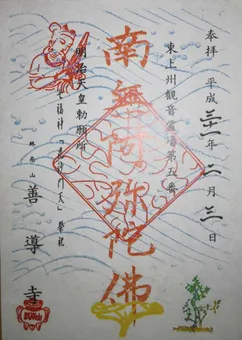 奉拝 平成三十一年二月三日
東上州観音霊場第五番
南無阿弥陀佛
明治天皇勅願所
七福神「毘沙門天」奉祀
善導寺